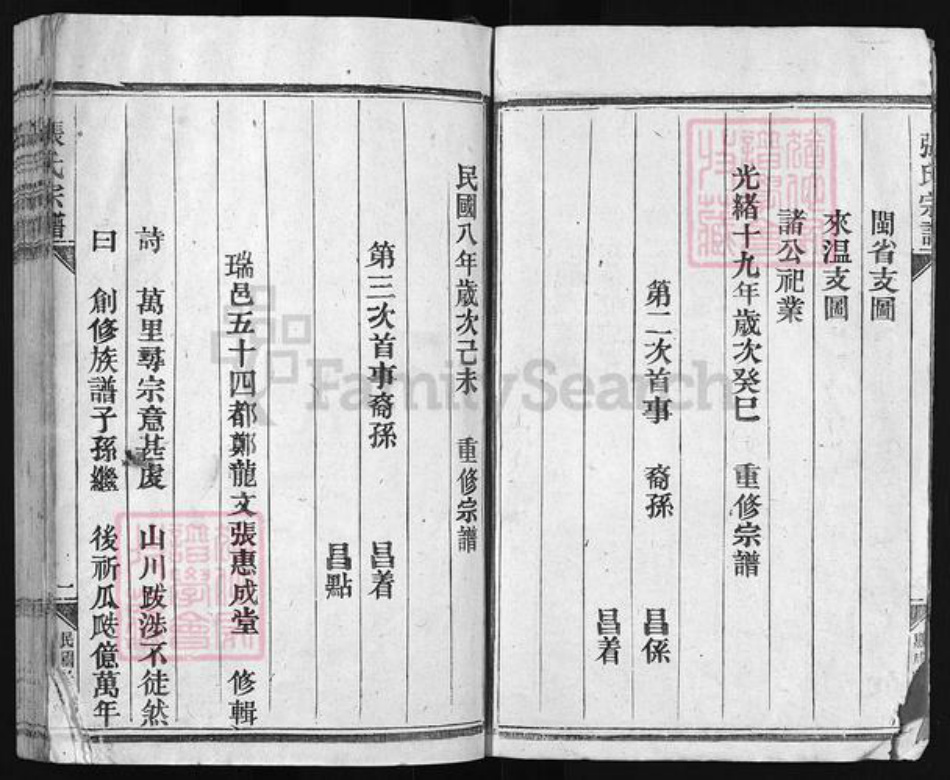 張氏宗譜
閩省支圖
來温支圖
諸公祀業
光緒十九年歲次癸巳 重修宗譜
第二次首事 裔孫 昌係
昌着
民國八年歲次己未 重修宗譜
第三次首事裔孫 昌着
昌點
瑞邑五十四都鄭龍文張惠成堂 修輯
詩 萬里尋宗意甚虔 山川跋涉不徒然
曰 創修族譜子孫繼 後祈瓜瓞億萬年
張氏宗譜
一
民國
FamilySearch